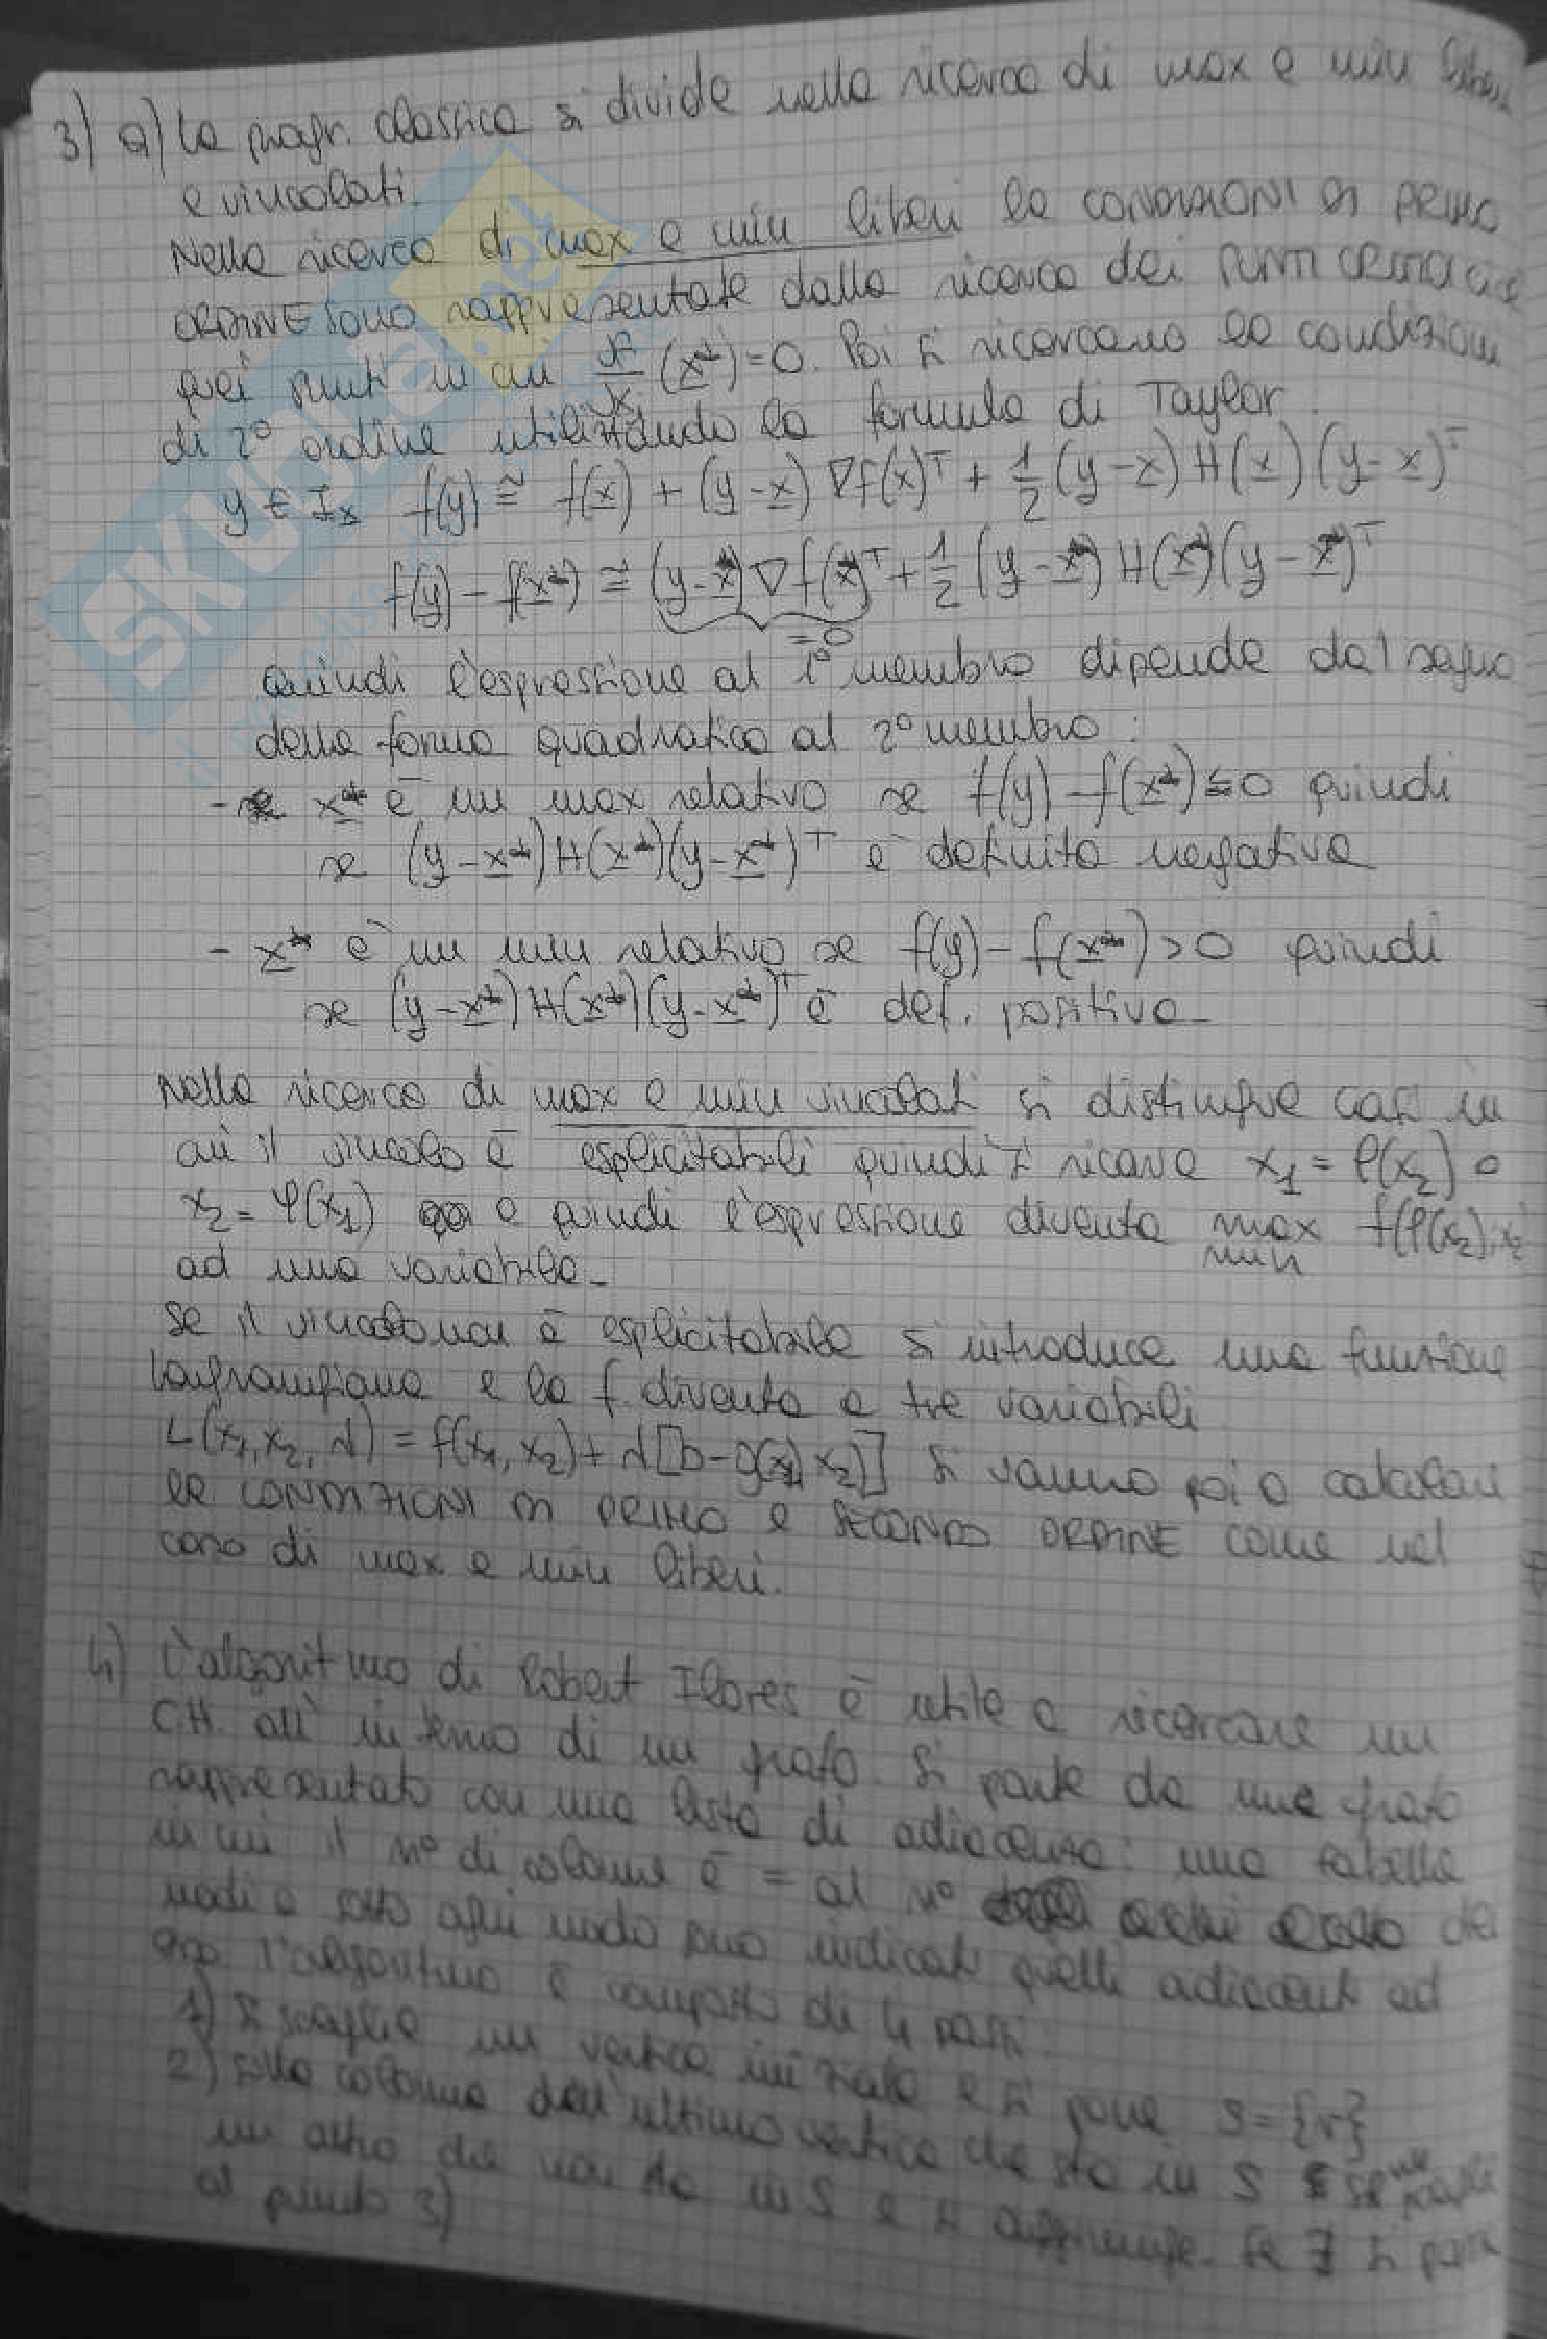 3) a) La progr. classica si divide nella ricerca di max e min liberi
e vincolati.
Nella ricerca di max e min liberi le CONDIZIONI DI PRIMO
ORDINE sono rappresentate dalla ricerca dei PUNTI CRITICI cioè
quei punti in cui ∂f/∂xᵢ (x*)=0. Poi si ricercano le condizioni
di 2° ordine utilizzando la formula di Taylor.
y ∈ Ix f(y) ≅ f(x) + (y-x) ∇f(x)ᵀ + 1/2 (y-x) H(x) (y-x)ᵀ
f(y) - f(x*) ≅ (y-x*) ∇f(x*)ᵀ + 1/2 (y-x*) H(x*) (y-x*)ᵀ
=0
Quindi l'espressione al 1° membro dipende dal segno
della forma quadratica al 2° membro:
- x* è un max relativo se f(y) - f(x*) ≤0 quindi
se (y-x*) H(x*) (y-x*)ᵀ è definita negativa
- x* è un min relativo se f(y) - f(x*) >0 quindi
se (y-x*) H(x*) (y-x*)ᵀ è def. positiva-
Nella ricerca di max e min vincolati si distingue casi in
cui il vincolo è esplicitabili quindi si ricava x₁ = φ(x₂) o
x₂ = φ(x₁) e quindi l'espressione diventa max min f(φ(x₂), x₂)
ad una variabile-
Se il vincolo non è esplicitabile si introduce una funzione
lagrangiana e la f. diventa a tre variabili
L(x₁, x₂, λ) = f(x₁, x₂) + λ[b-g(x₁, x₂)] si vanno poi a calcolare
le CONDIZIONI DI PRIMO e SECONDO ORDINE come nel
caso di max e min liberi.
4) L'algoritmo di Robert Flores è utile a ricercare un
C.H. all'interno di un grafo. Si parte da una grafo
rappresentato con una lista di adiacenza: una tabella
in cui il n° di colonne è = al n° dei
nodi e sotto ogni nodo sono indicati quelli adiacenti ad
esso. L'algoritmo è composto di 4 passi:
1) Si sceglie un vertice iniziale e si pone S={r}
2) Sulla colonna dell'ultimo vertice che sta in S se ne sceglie
un altro che non sta in S e si aggiunge. Se ∄ si passa
al punto 3)
SKUOLA.net